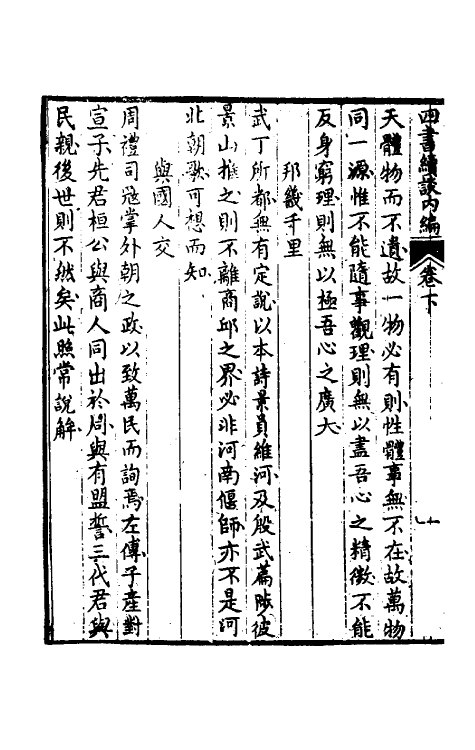 四書續談內編
卷下
十
天體物而不遺故一物必有則性體事無不在故萬物
同一源惟不能隨事觀理則無以盡吾心之精微不能
反身窮理則無以極吾心之廣大
邦畿千里
武丁所都無有定說以本詩景員維河及殷武篇陟彼
景山推之則不離商邱之界必非河南偃師亦不是河
北朝歌可想而知
與國人交
周禮司冦掌外朝之政以致萬民而詢焉左傳子產對
宣子先君桓公與商人同出於周與有盟誓三代君與
民親後世則不然矣此照常說解